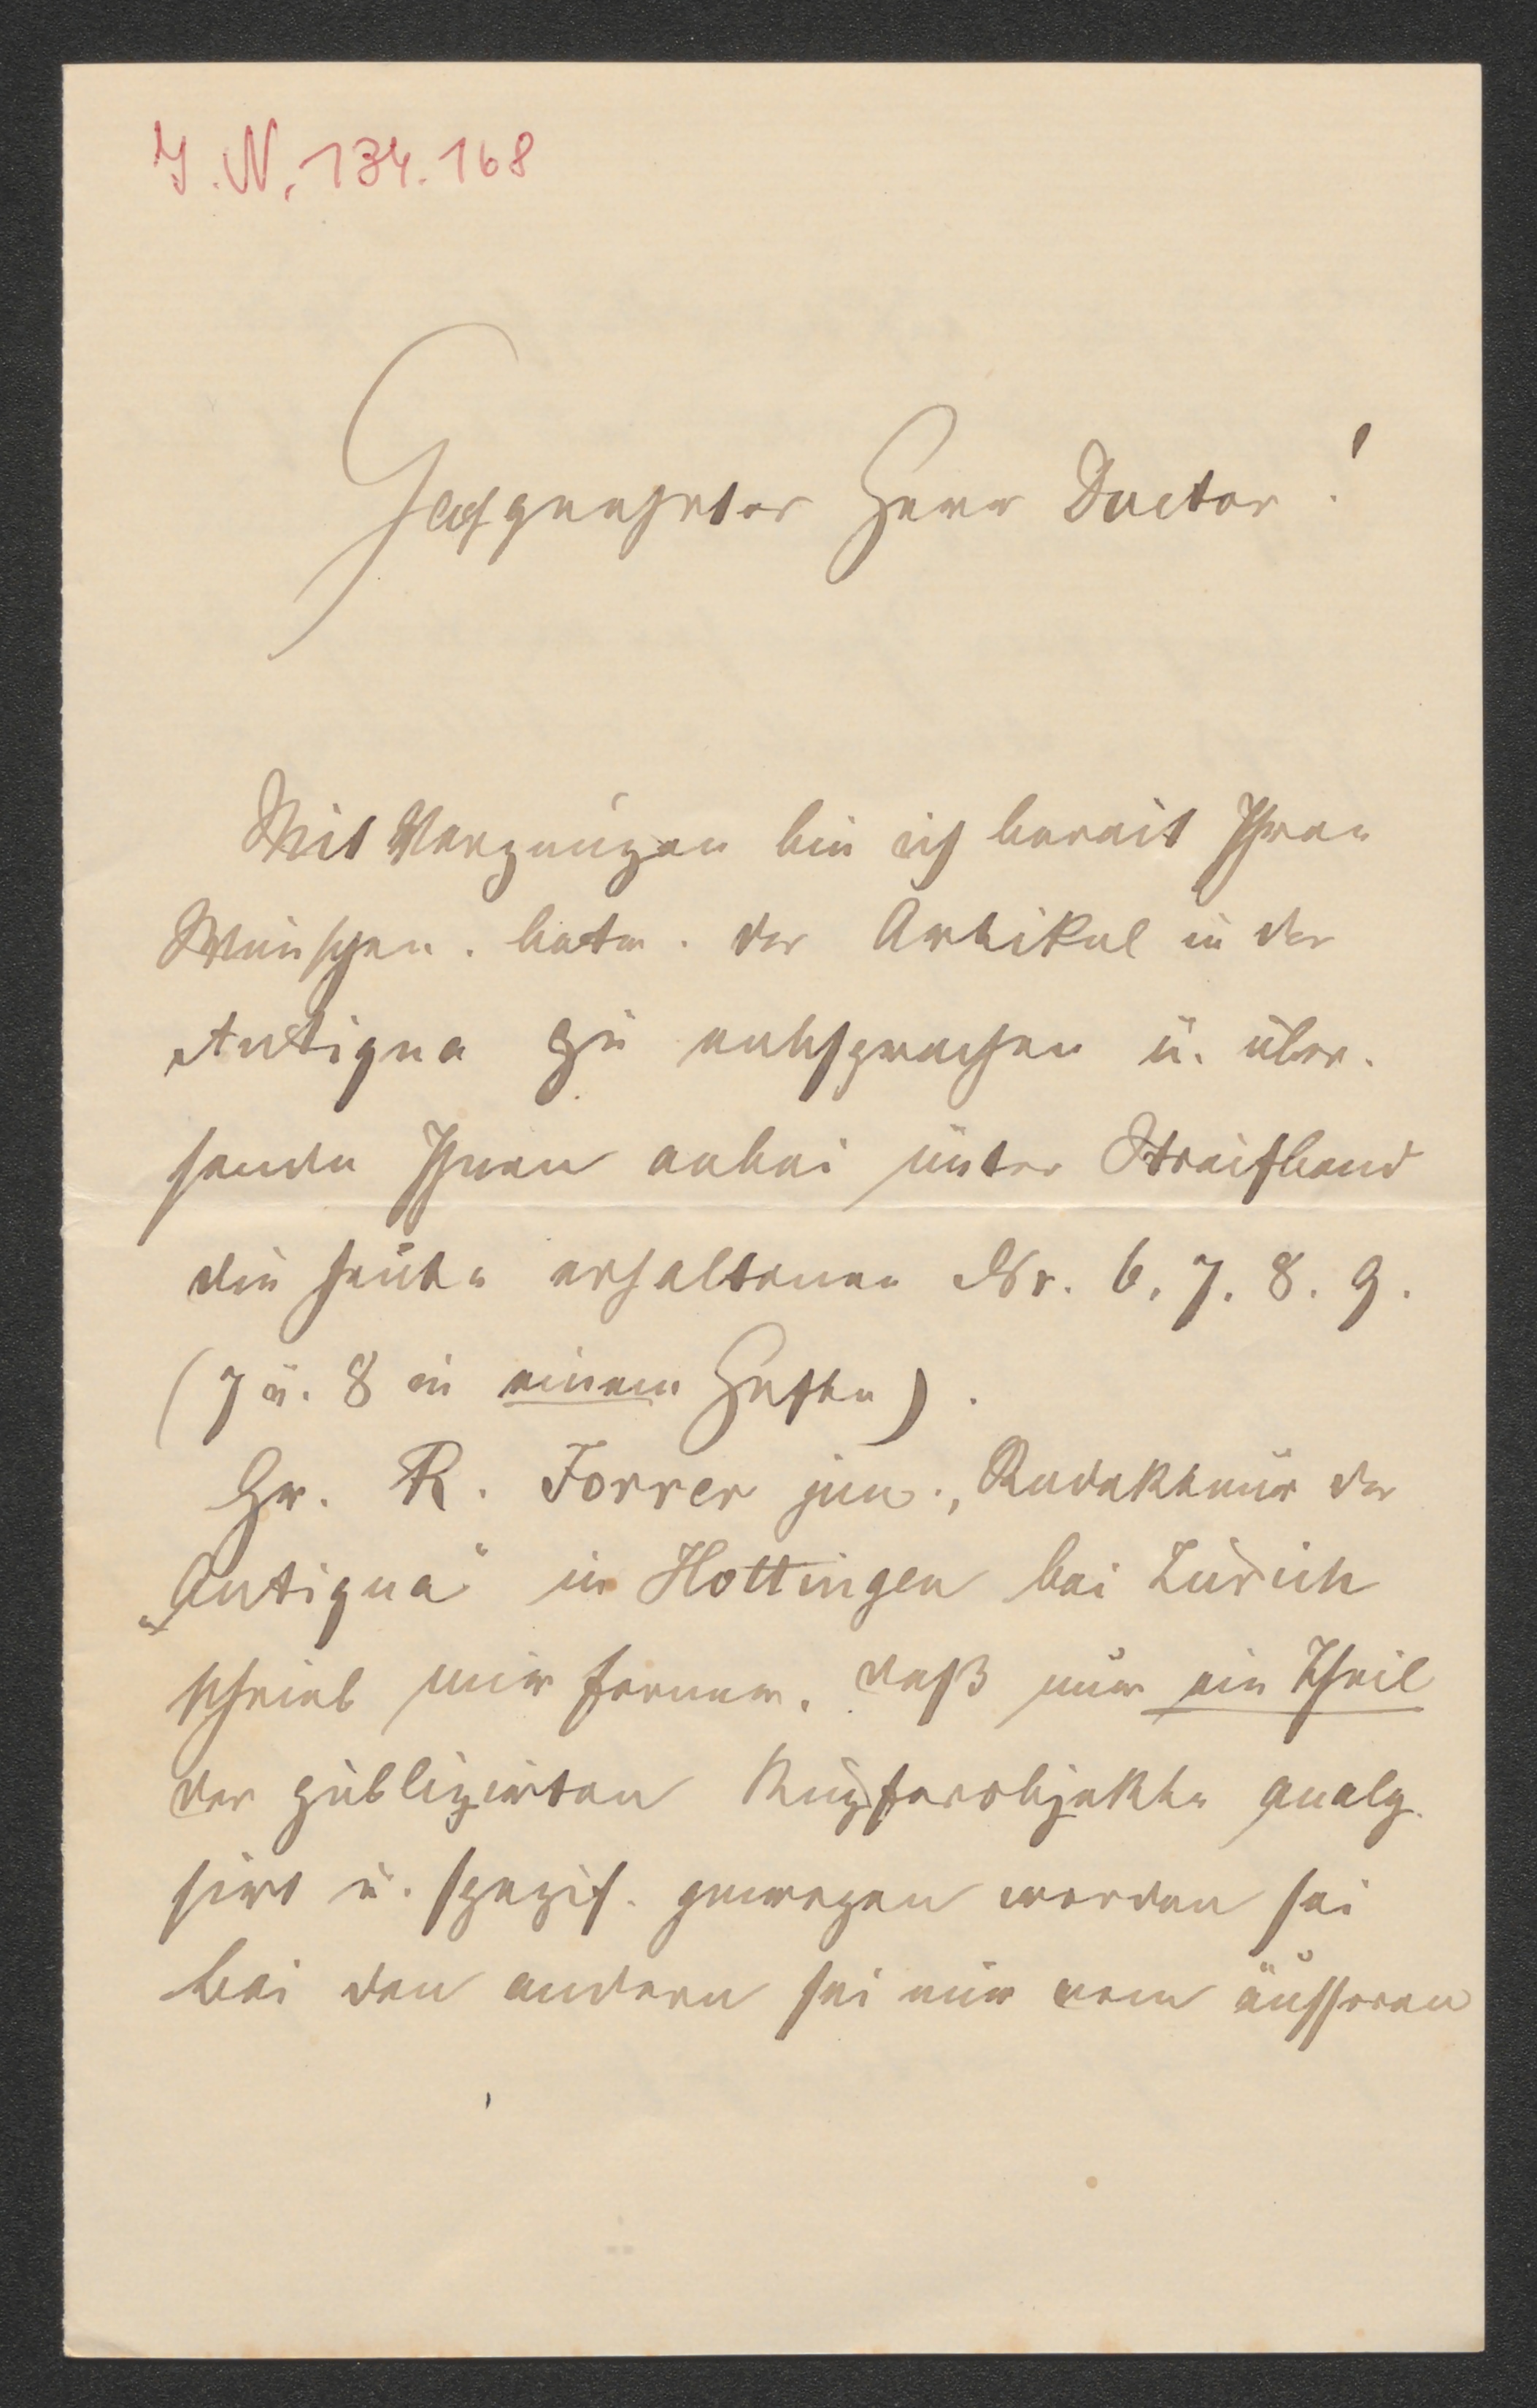 I.N. 134.168
Hochgeehrter Herr Doctor!
Mit Vergnügen bin ich bereit Ihren
Wünschen. betr. der Artikel in der
Antiqua zu entsprechen u. über-
sende Ihnen anbei unter Streifband
die heute erhaltenen Nr. 6. 7. 8. 9.
(7 u. 8 in einem Hefte).
Hr. R. Forrer jun., Redakteur der
„Antiqua" in Hottingen bei Zürich
schrieb mir ferner. daß nur ein Theil
der publizirten Kupferobjekte analy-
sirt u. spezif. gewogen worden sei
bei den andern sei nur vom äusseren